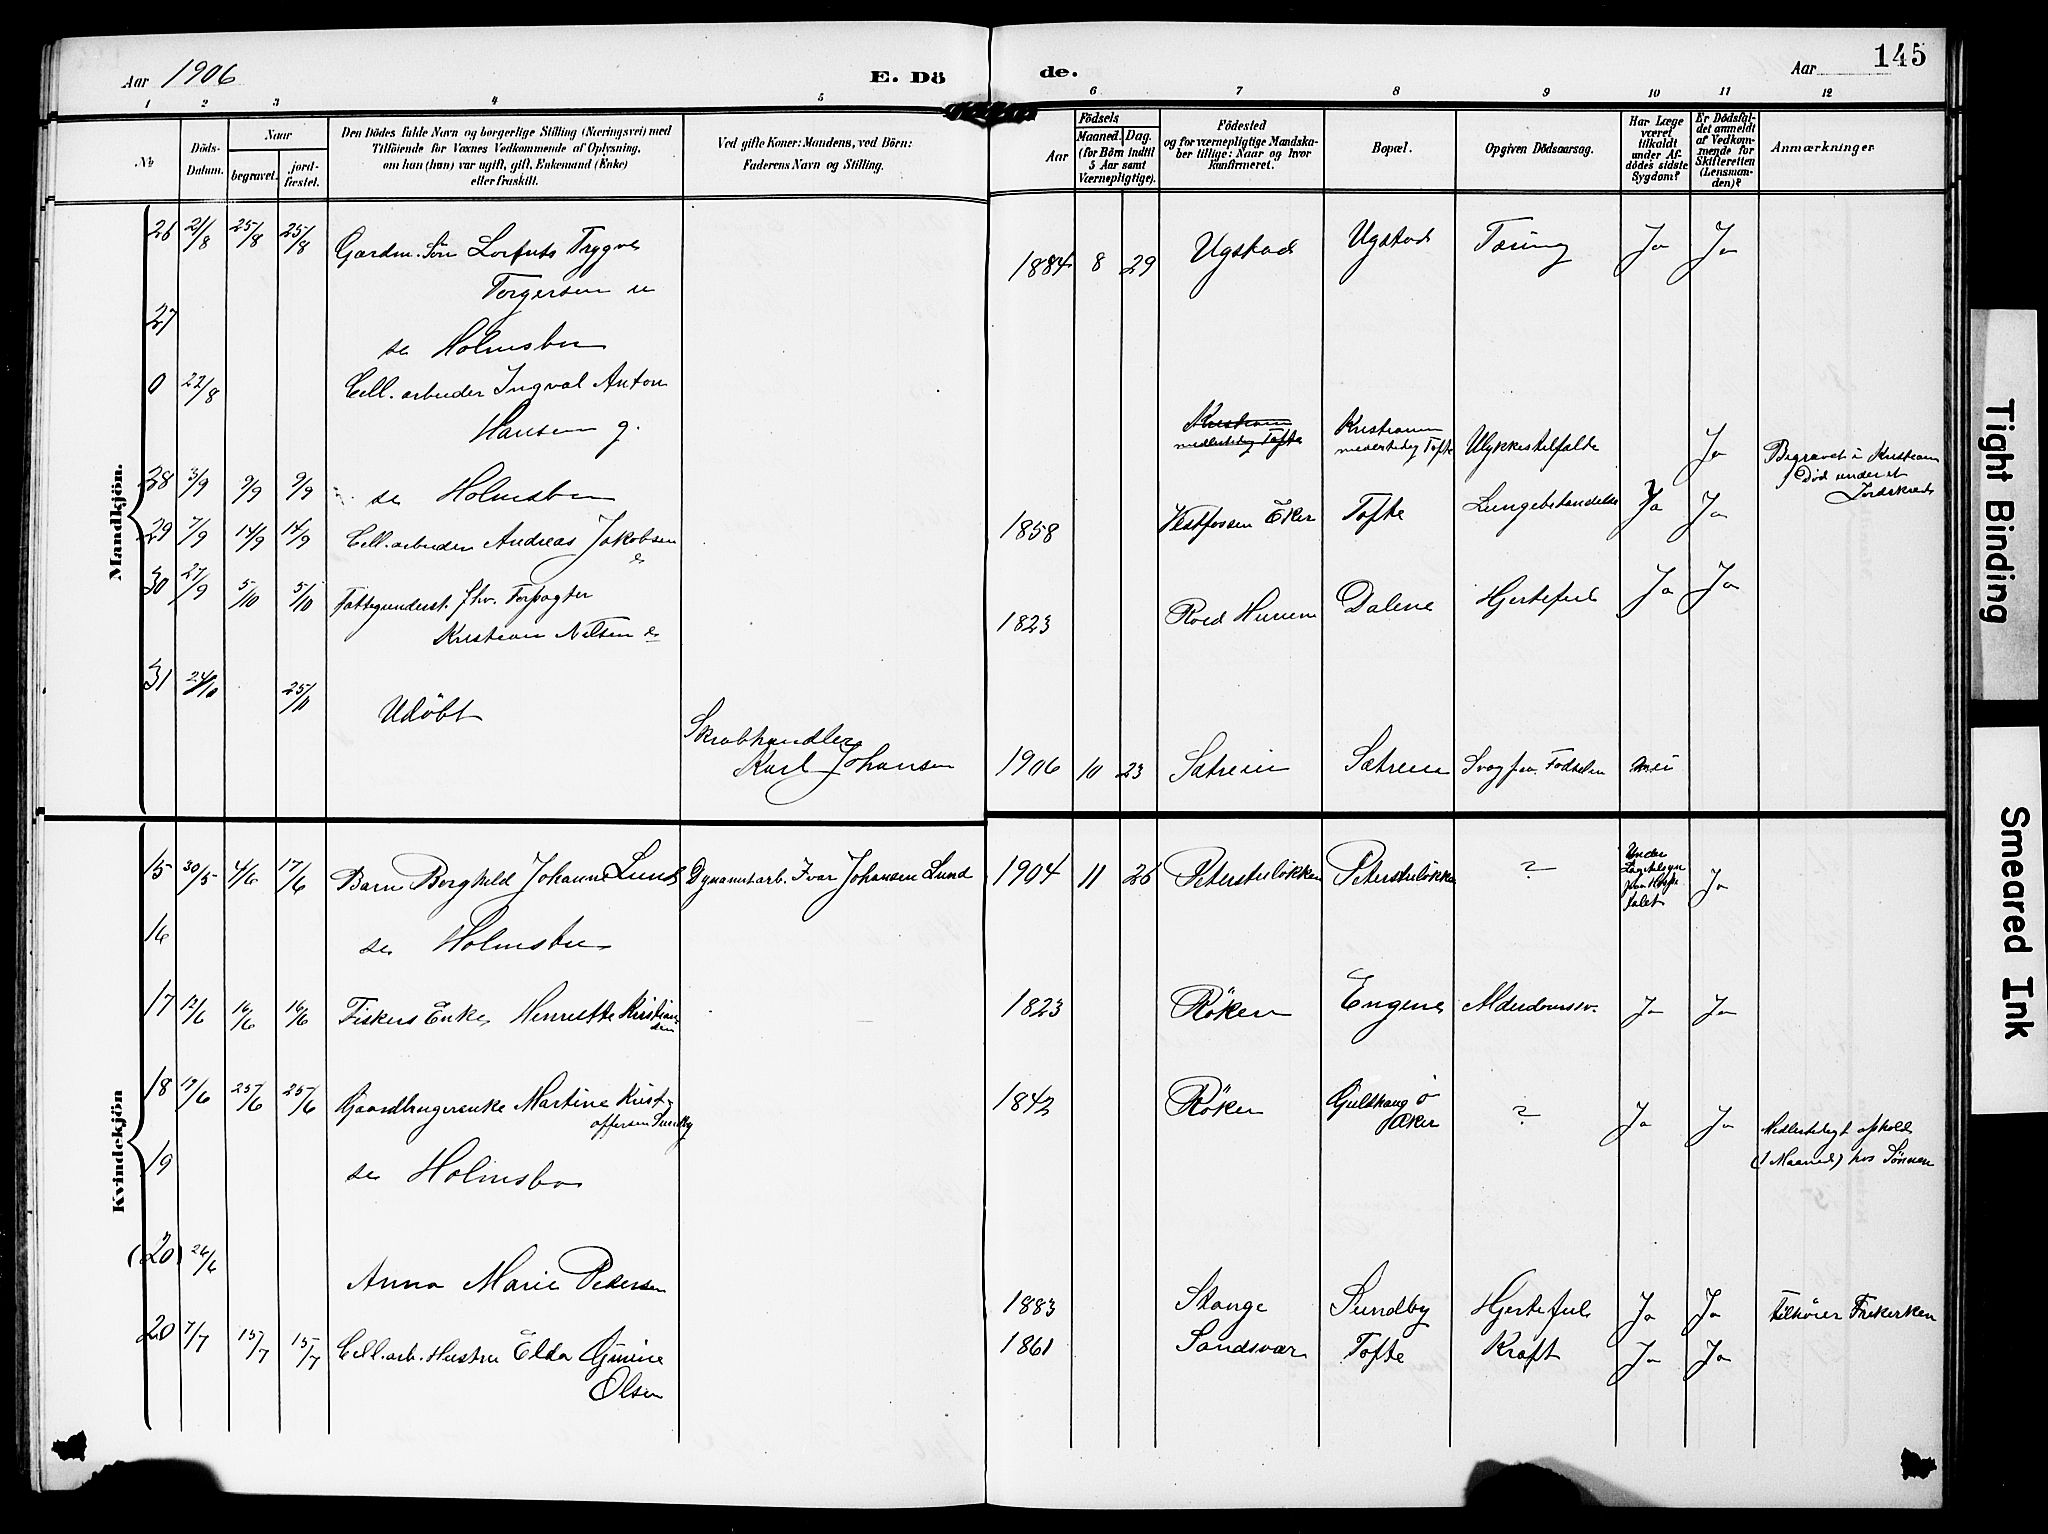 Aar 1906
E. Dö
de.
Aar
145
1 2 3 4 5 6 7 8 9 10 11 12
No
Döds-
Datum.
Naar
begravet.
jord-
fæstet.
Den Dödes fulde Navn og borgerlige Stilling (Næringsvei) med
Tilföiende for Voxnes Vedkommende af Oplysning,
om han (hun) var ugift, gift, Enkemand (Enke)
eller fraskilt.
Ved gifte Koner: Mandens, ved Börn:
Faderens Navn og Stilling.
Födsels
Aar
Maaned.
Dag.
(for Börn indtil
5 Aar samt
Værnepligtige).
Födested
og for værnepligtige Mandska-
ber tillige: Naar og hvor
konfirmeret.
Bopæl.
Opgiven Dödsaarsag.
Har Læge
været
tilkaldt
under Af-
dödes sidste
Sygdom?
Er Dödsfal-
det anmeldt
af Vedkom-
mende for
Skifteretten
(Lensman-
den)?
Anmærkninger
Mandkjön.
26 21/8 25/8 25/8 Gaardm. Sön Trygve
Torgersen u
1884 8 29 Ugstad Ugstad Tæring Ja Ja
27
se Holmsbu
0 22/8 Cell. arbeider Ingval Anton
Hansen g.
Kristiania
midlertidig Tofte
Kristiania
midlertidig Tofte
Ulykkestilfælde Ja
Begravet i Kristiania
Död under et
Jordskred
28 3/9 9/9 9/9 se Holmsbu
29 7/9 14/9 14/9 Cell. arbeider Andreas Jakobsen
e
1858 Vestfossen Eker Tofte Lungebetændelse Ja Ja
30 27/9 5/10 5/10 Fattigunderst. fhv. Forpagter
Kristian Nilsen e
1823 Roed Hurum Dalene Hjertefeil Ja Ja
31 24/10 25/10 Udöbt
Skrabhandler
Karl Johansen
1906 10 23 Sætrem Sætrem Svag fra Födselen nei
Kvindekjön
15 30/5 4/6 17/6 Barn Borghild Johanne Lund Dynamitarb. Ivar Johansen Lund
1904 11 26 Peterstuløkken Peterstuløkken ?
Under
Lægetilsyn
Ja
16
se Holmsbu
17 12/6 16/6 16/6 Fiskers Enke Henriette Kristian-
sen
1823 Röken Engene Alderdomssv. Ja Ja
18 19/6 25/6 25/6 Gaardbrugerenke Martine Krist-
offersen Sundby
1842 Röken
Aker
? Ja Ja
Midlertidigt ophold
(1 Maaned) hos Sönnen
19
se Holmsbu
(20) 26/6
Anna Marie Pedersen
1883 Stange Sundby Hjertefeil Ja Ja Tilhörer Frikirken
20 7/7 15/7 15/7 Cell. arb. Hustru Elda Gunine
Olsen
1861 Sandsvær Tofte Kræft Ja Ja
Tight Binding
Smeared Ink